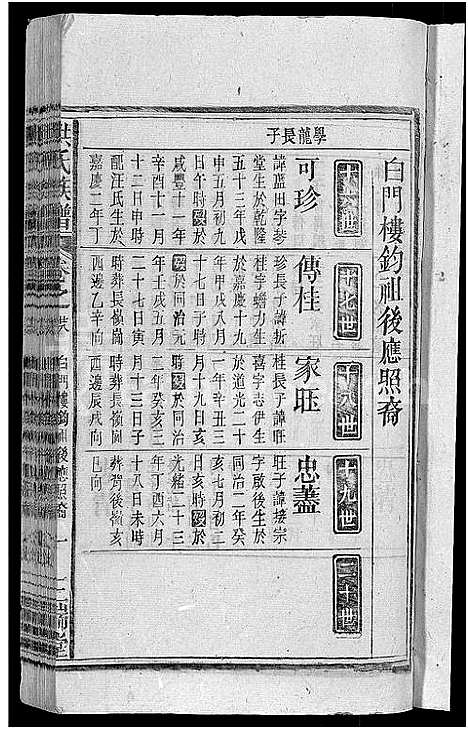 白門樓鈞祖後應照裔
十六世
十七世
十八世
十九世
二十世
學龍長子
可珍
諱藍田字琴
堂生於乾隆
五十三年戊
申五月初九
日午時歿於
咸豐十一年
辛酉十一月
十二日申時
配汪氏生於
嘉慶二年丁
傳桂
珍長子諱折
桂字蟾力生
於嘉慶十九
年甲戌八月
十七日子時
歿於同治元
年壬戌五月
二十七日寅
時葬長嶺崗
西邊乙辛向
家旺
桂長子諱興
喜字志伊生
於道光二十
一年辛丑三
月十九日亥
時歿於同治
二年癸亥三
月十三日子
時葬長嶺崗
西邊辰戌向
忠藎
旺子諱接宗
字敢後生於
同治二年癸
亥七月初二
日亥時歿於
光緒二十三
年丁酉六月
十八日未時
葬賀後嶺亥
巳向
洪氏族譜
卷之
白門樓鈞祖後應照裔
一